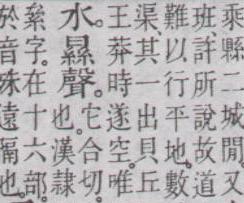 乘縣所二城閒又
班許二說故道
難以行平地數
渠其一出貝丘
王莽時遂空唯
水㬎聲它合切
也漢隸
糸字在十六部
於音殊遠隔也